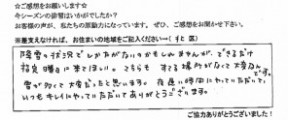 ☆ご感想をお願いします☆
今シーズンの除雪はいかがでしたか？
お客様の声が、私たちの原動力になっています。ぜひ、ご感想をお聞かせ下さい。
※差支えなければ、お住まいの地域をご記入ください→（ 区）
降雪の状況でしかたがないのかもしれませんが、できるだけ
指定曜日に来てほしい。こちらも する場所がなくて大変なんです。
雪が多くて大変だったと思います。夜遅い時間にやっていただいて、
いつもキレイにやっていただいてありがとうございます。
ご協力ありがとうございました！